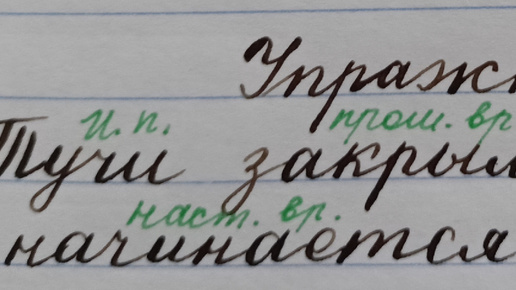 Упраж
и.п. прош. вр
Тучи закрыл
наст. вр.
начинается